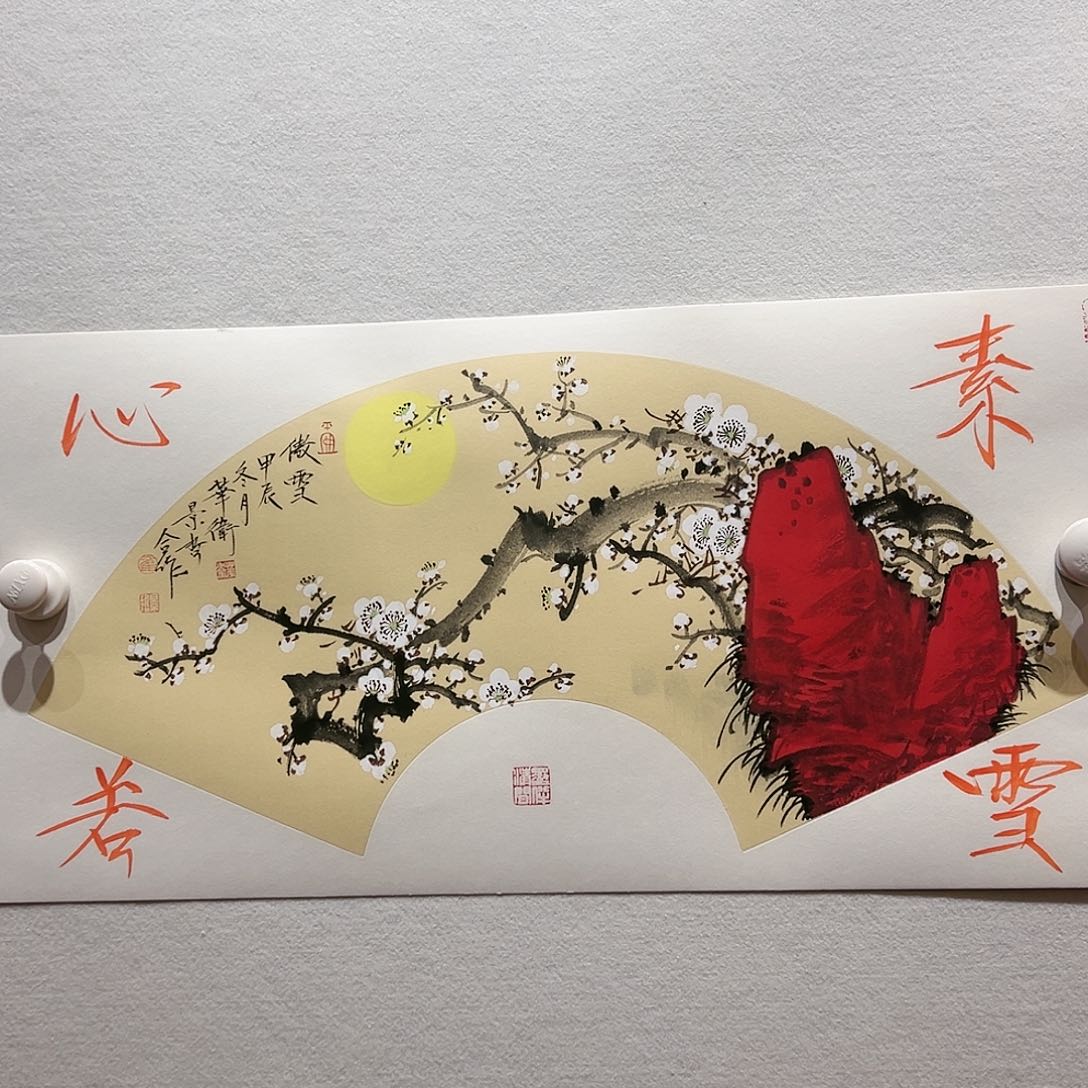 素
心
若
雪
傲雪
甲辰
冬月
華衛
景
合作